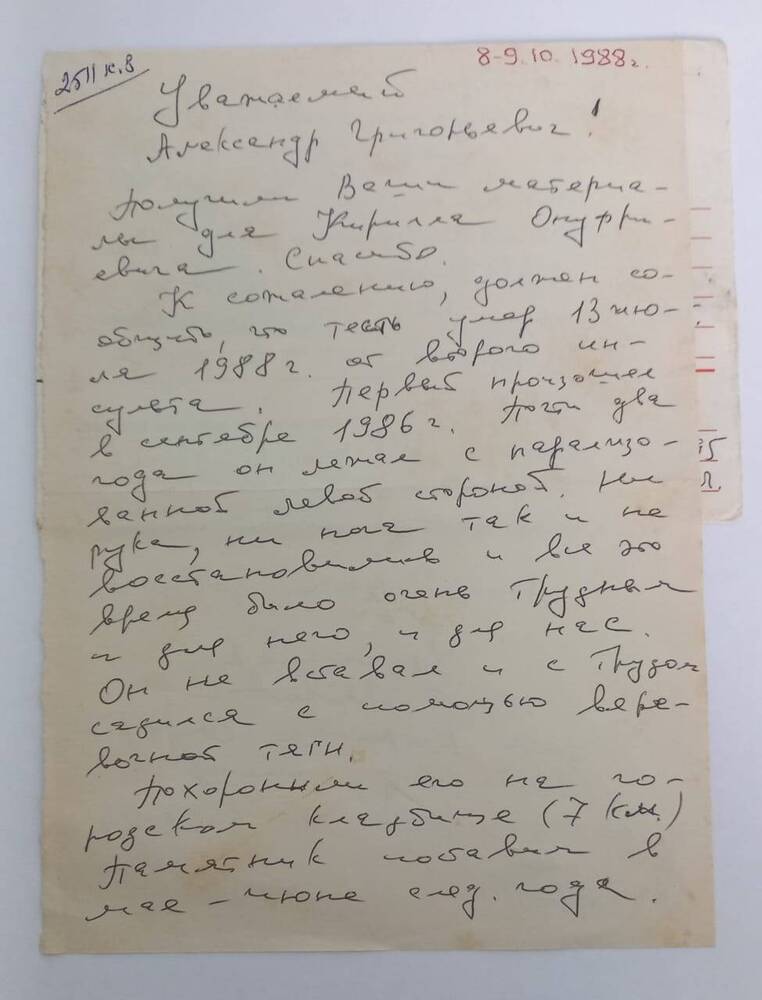 2511 к.в
8-9.10.1988г.
Уважаемый
Александр Григорьевич!
Получили Ваши материа-
лы для Кирилла Онуфри-
евича. Спасибо.
К сожалению, должен со-
общить, что тесть умер 13 ию-
ля 1988 г. от второго ин-
сульта. Первый произошел
в сентябре 1986 г. Почти два
года он лежал с парализо-
ванной левой стороной. Ни
рука, ни нога так и не
восстановились и все это
время было очень трудным
и для него, и для нас.
Он не вставал и с трудом
садился с помощью вере-
вочной тяги.
Похоронили его на го-
родском кладбище (7 км.)
Памятник поставим в
мае-июне след. года.